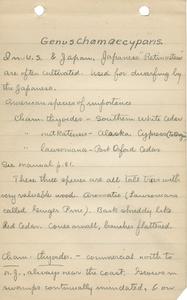 Genus Chamaecyparis.
In U.S. & Japan, Japanese "Retinosporas"
are often cultivated. Used for dwarfing by
the Japanese.
American species of importance
Cham. thyoides – Southern White Cedar
" nutkatensis – Alaska Cypress
" lawsoniana – Port Orford Cedar
See manual p. 81.
These three species are all late trees with
very valuable wood. Aromatic (Lawsoniana
called Ginger Pine). Bark shreddy like
Red Cedar. Cones small, branches flattened
Cham. thyoides – commercial north to
N.J., always near the coast. Grows in
swamps continually inundated, & on